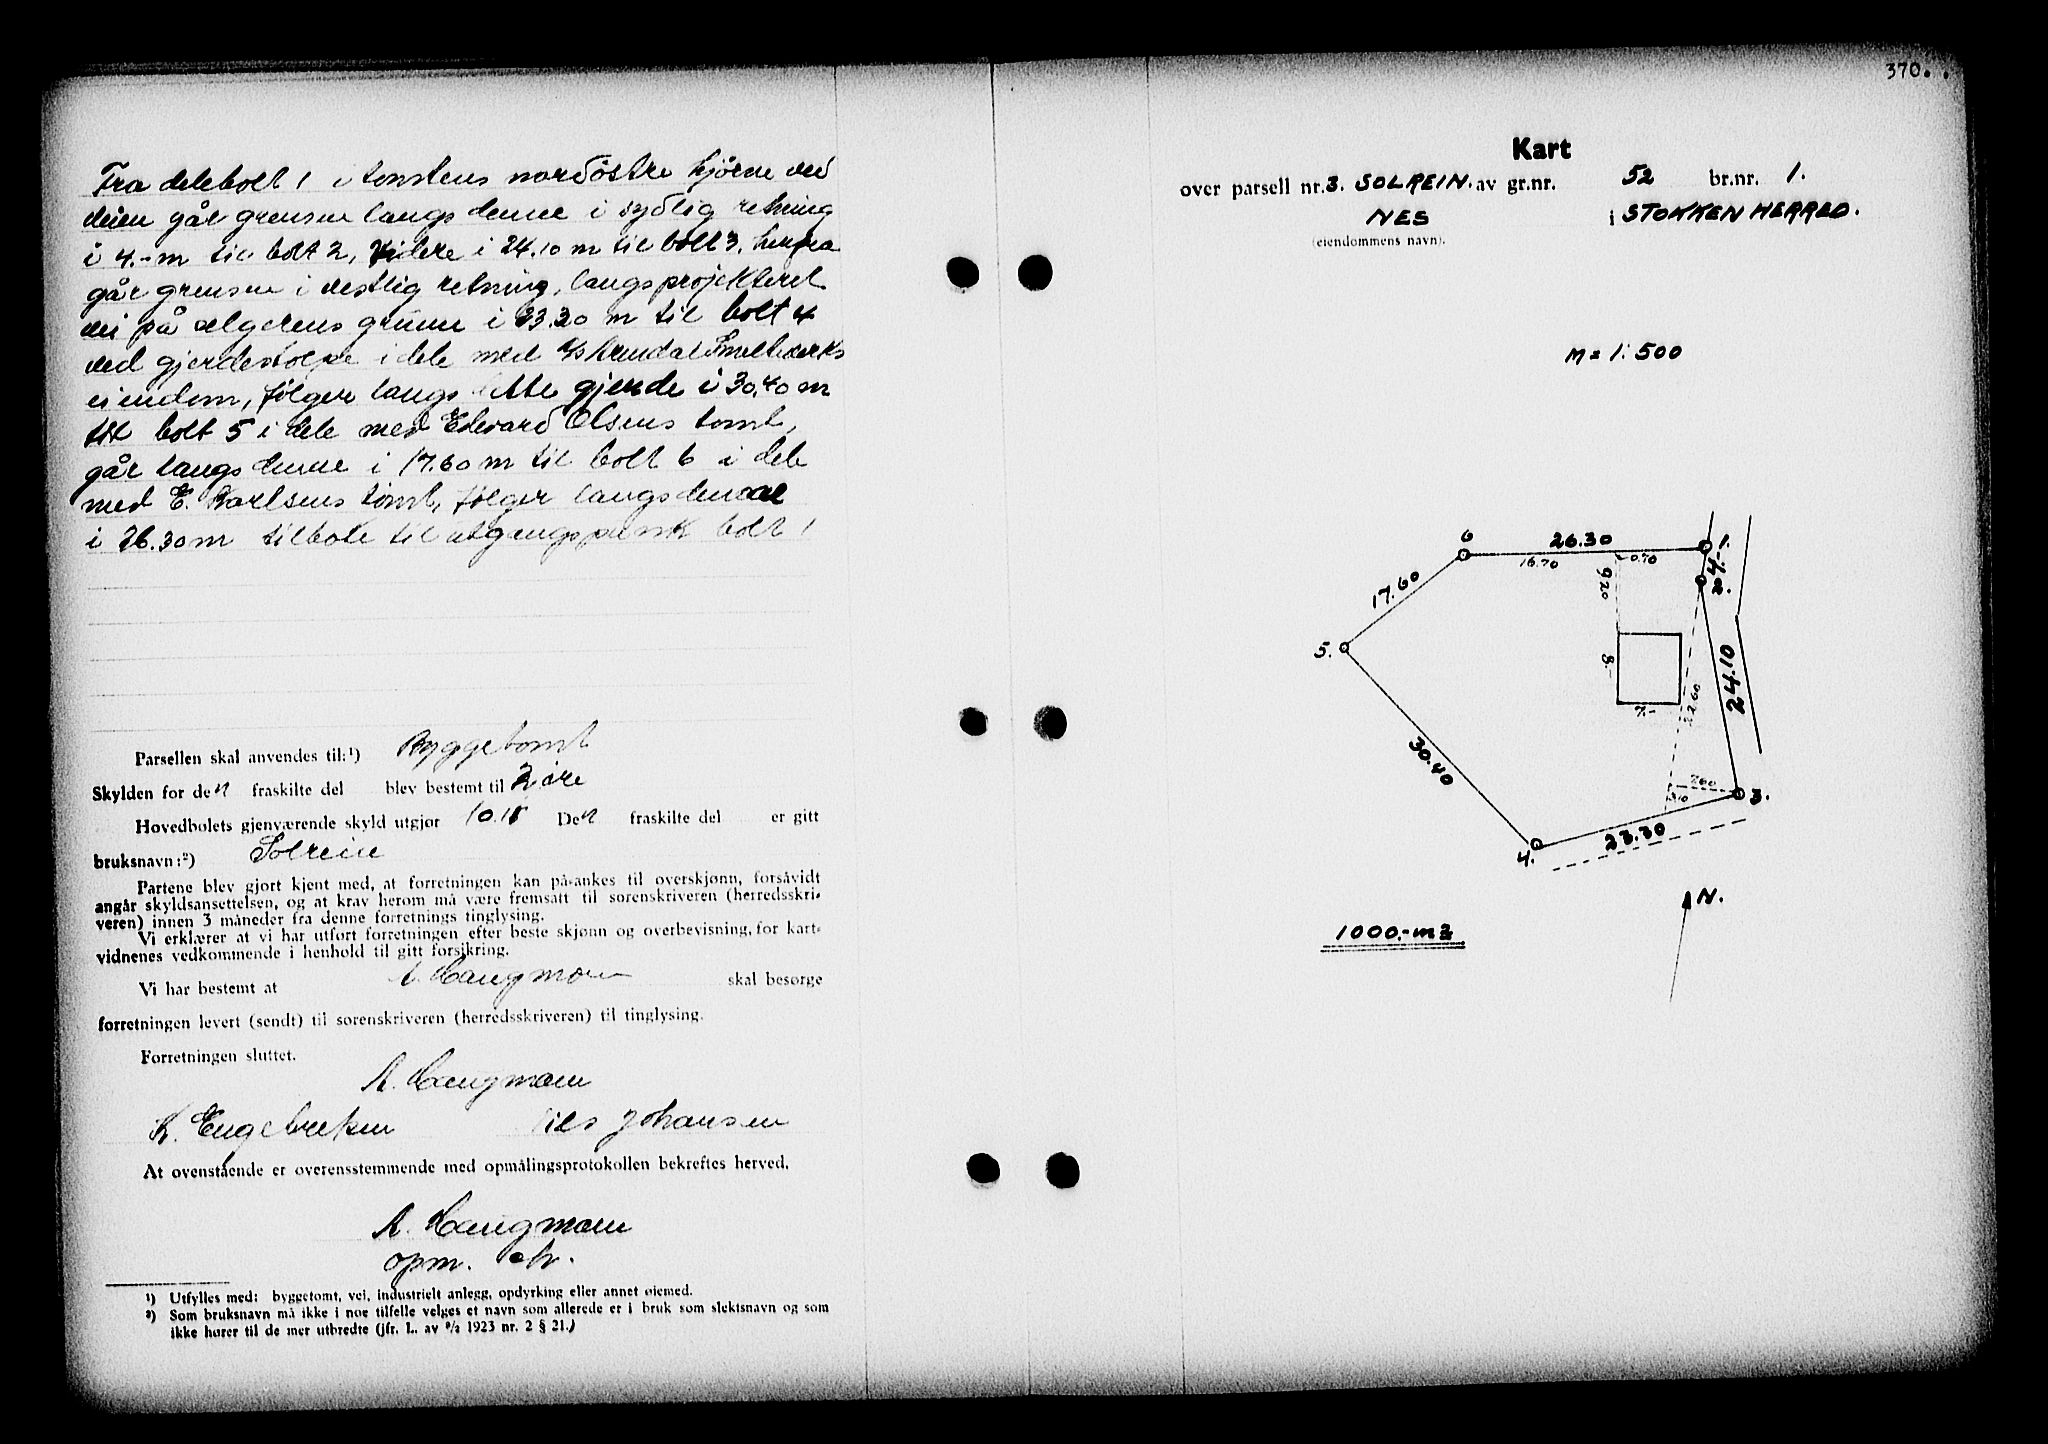 Fra delebolt 1 i tomtens nordöstre hjörne ved
veien går grensen langs denne i sydlig retning
i 4.- m til bolt 2, videre i 24.10 m til bolt 3, herfra
går grensen i vestlig retning, langs projekteret
vei på selgerens grunn i 23.30 m til bolt 4
ved gjerdestolpe i dele med A/S Arendal Smelteverks
eiendom, følger langs dette gjerde i 30,40 m
til bolt 5 i dele med Edvard Olsens tomt,
går langs denne i 17.60 m til bolt 6 i dele
med E. Karlsens tomt, følger langs denne
i 26.30 m tilbake til utgangspunkt bolt 1
Parsellen skal anvendes til:¹) Byggetomt
Skylden for den fraskilte del blev bestemt til 2 øre
Hovedbølets gjenværende skyld utgjør 10.18 Den fraskilte del er gitt
bruksnavn:²) Solrein
Partene blev gjort kjent med, at forretningen kan på-ankes til overskjønn, forsåvidt
angår skyldsansettelsen, og at krav herom må være fremsatt til sorenskriveren (herredsskri-
veren) innen 3 måneder fra denne forretnings tinglysing.
Vi erklærer at vi har utført forretningen efter beste skjønn og overbevisning, for kart-
vidnenes vedkommende i henhold til gitt forsikring.
Vi har bestemt at A. Haugmoen skal besørge
forretningen levert (sendt) til sorenskriveren (herredsskriveren) til tinglysing.
Forretningen sluttet.
A. Haugmoen
K. Engebretsen Nils Johansen
At ovenstående er overensstemmende med opmålingsprotokollen bekreftes herved.
A. Haugmoen
opm.
¹) Utfylles med: byggetomt, vei, industrielt anlegg, opdyrking eller annet øiemed.
²) Som bruksnavn må ikke i noe tilfelle velges et navn som allerede er i bruk som slektsnavn og som
ikke hører til de mer utbredte (jfr. L. av ⁹/₂ 1923 nr. 2 § 21.)
370.
Kart
over parsell nr. 3. SOLREIN. av gr.nr. 52 br.nr. 1.
NES i STOKKEN HERRED.
(eiendommens navn).
M = 1:500
6
26.30
1.
16.70
0.70
4.-
2.
9.20
17.60
5.
8.-
7.-
22.60
24.10
30.40
7.60
3.10
3.
23.30
4.
N.
1000.- m2